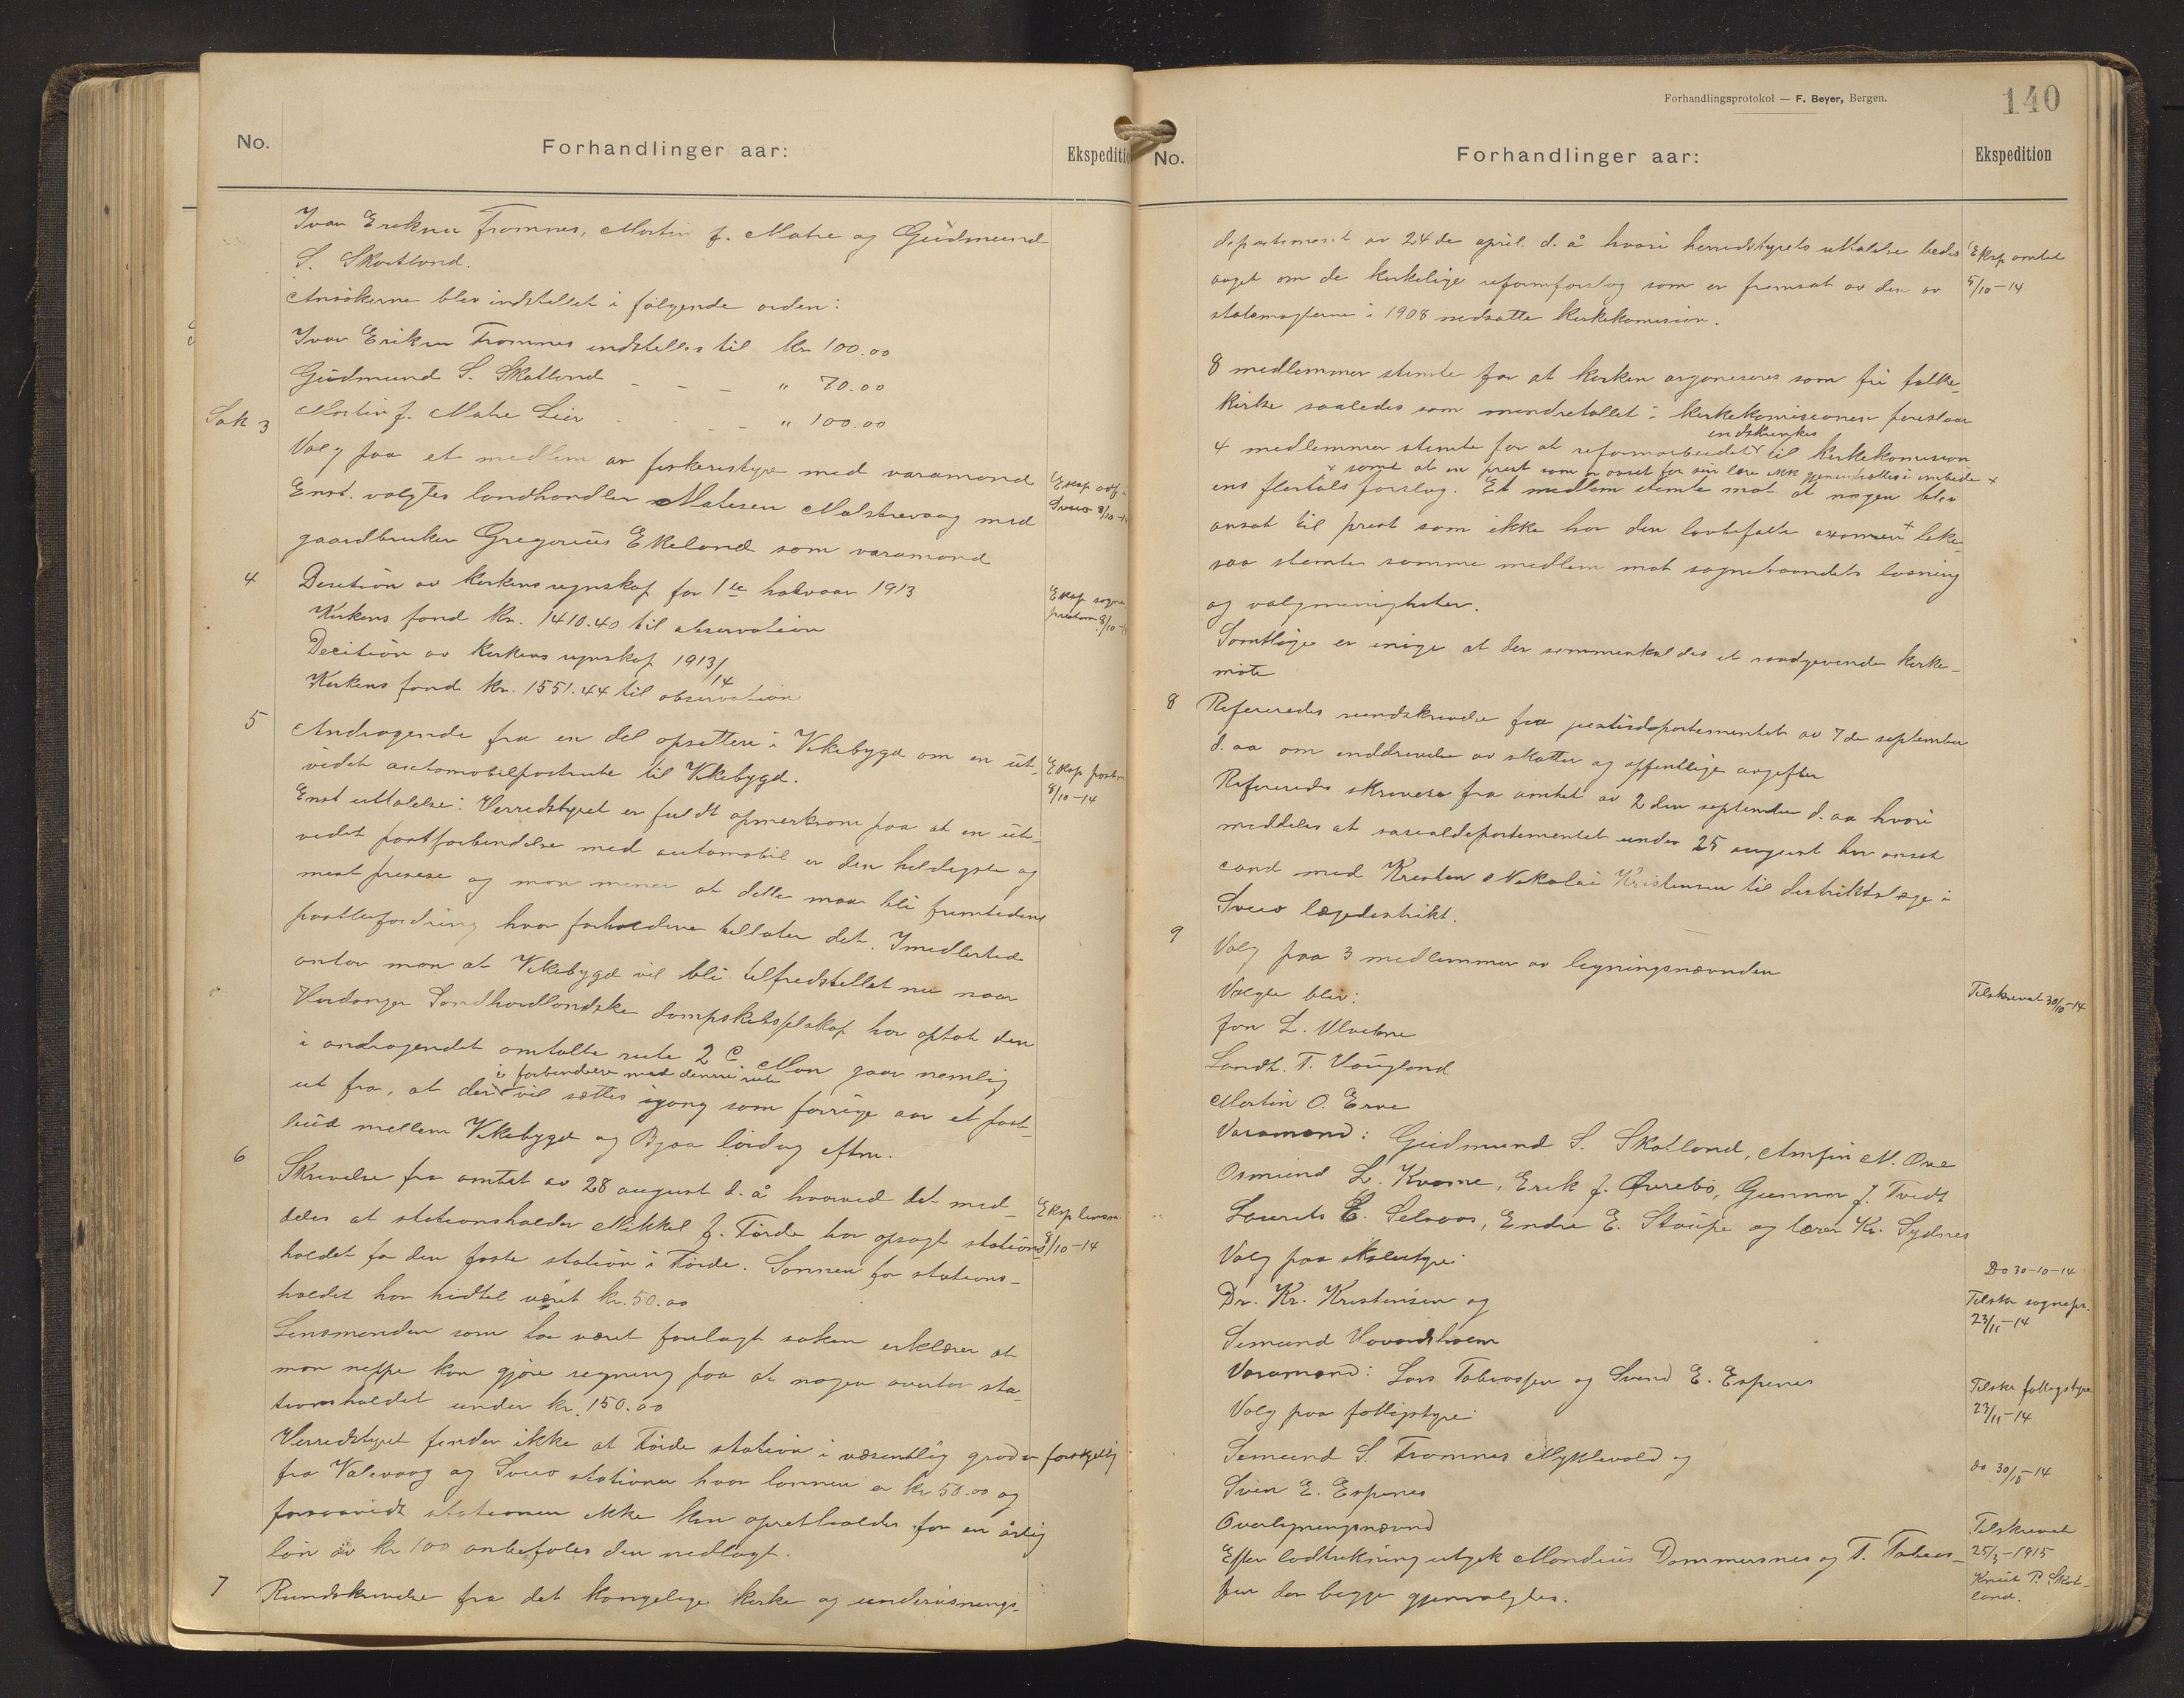 No.
Forhandlinger aar:
Ekspediti
Ivar Eriksen Tromnes, Martin J. Matre og Gudmund
S. Skartland.
Ansökerne blev indstillet i fölgende orden:
Ivar Eriksen Tromnes indstilles til kr 100.00
Gudmund S. Skotland - - - " 70.00
Martin J. Matre Lier - - - " 100.00
Sak 3
Valg paa et medlem av fiskeristyre med varamand
Enst. valgtes landhandler Matesen Malstrevaag med
gaardbruker Gregorius Ekeland som varamand
Sveio 8/10-1
4
Decition av kirkens regnskap for 1ste halvaar 1913
Kirkens fond kr. 1410.40 til observation
Decition av kirkens regnskap 1913/14
Kirkens fond kr. 1551.44 til observation
Eksp sogne
presten 8/10-1
5
Andragende fra en del opsittere i Vikebygd om en ut-
videt automobilpostrute til Vikebygd.
Eksp postm
8/10-14
Enst uttalelse: Herredstyret er fuldt opmerksom paa at en ut-
videt postforbindelse med automobil er den heldigste og
mest presise og man mener at dette maa bli fremtidens
postbefordring hvor forholdene tillater det. Imedlertid
antar man at Vikebygd vil bli tilfredstillet nu naar
Hardanger Söndhordlandske dampskibsselskap har optat den
i andragendet omtalte rute 2 C. Man gaar nemlig
i forbindelse med denne rute
ut fra, at der vil sættes igang som forrige aar et post-
bud mellem Vikebygd og Bjoa lördag efterm.
6
Skrivelse fra amtet av 28 august d. å hvorved det med-
deles at stationsholder Mikkel J. Förde har opsagt stations-
holdet for den faste station i Förde. Lönnen for stations-
holdet har hidtil været kr. 50.00
Eksp lensm.
8/10-14
Lensmanden som har været forelagt saken erklærer at
man neppe kan gjöre regning paa at nogen overtar sta-
tionsholdet under kr. 150.00
Herredstyret finder ikke at Förde station i væsentlig grad er forskjellig
fra Valevaag og Sveio stationer hvor lönnen er kr 50.00 og
forsaavidt stationen ikke kan opretholdes for en årlig
lön av kr 100 anbefales den nedlagt.
7
Rundskrivelse fra det kongelige kirke og undervisnings-
Forhandlingsprotokol — F. Beyer, Bergen.
140
No.
Forhandlinger aar:
Ekspedition
departement av 24de april d. å hvori herredstyrets uttalelse bedes
avget om de kirkelige reformforslag som er fremsat av den av
statsmagterne i 1908 nedsatte kirkekomision.
Eksp amtet
5/10-14
8 medlemmer stemte for at kirken organiseres som fri folke-
kirke saaledes som mindretallet i kirkekomisionen foreslaar
indskrænkes
4 medlemmer stemte for at reformarbeidet til kirkekomision
x samt at en prest som er avsat for sin lære ikke gjenindsættes i embede x
ens flertals forslag. Et medlem stemte mot at nogen blev
ansat til prest som ikke har den lovbefalte examen + like-
saa stemte samme medlem mot sognebaandets lösning
og valgmenigheter.
Samtlige er enige at der sammenkaldes et raadgivende kirke-
möte
8
Refereredes rundskrivelse fra justisdepartementet av 7de september
d. aa om inddrivelse av skatter og offentlige avgifter
Refereredes skrivelse fra amtet av 2den september d. aa hvori
meddeles at socialdepartementet under 25 august har ansat
cand med Kresten Nikolai Kristensen til distriktslæge i
Sveio lægedistrikt.
9
Valg paa 3 medlemmer av ligningsnævnden
Valgte blev:
Tilskrevet 30/10-14
Jon L. Ulvekne
Landh. T. Haugland
Martin O. Erve
Varamænd: Gudmund S. Skotland, Amfin M. Ove
Osmund L. Kvame, Erik J. Övrebö, Gunnar J. Tvedt
Laurits E. Selvaas, Endre E. Staupe og lærer Kr. Sydnes
Valg paa skolestyre:
Do 30-10-14
Dr. Kr. Kristensen og
Semund Hovardsholm
Tilskr sognepr.
23/11-14
Varamænd: Lars Tobiassen og Svend E. Espenes
Valg paa fattigstyre:
Tilskr fattigstyre
23/11-14
Semund S. Tromnes Myklevold og
Svein E. Espenes
do 30/10-14
Overligningsnævnd
Efter lodtrækning utgik Mondius Dommersnes og T. Tobias-
sen der begge gjenvalgtes.
Tilskrevet
25/3-1915
Knut P. Skot-
land.